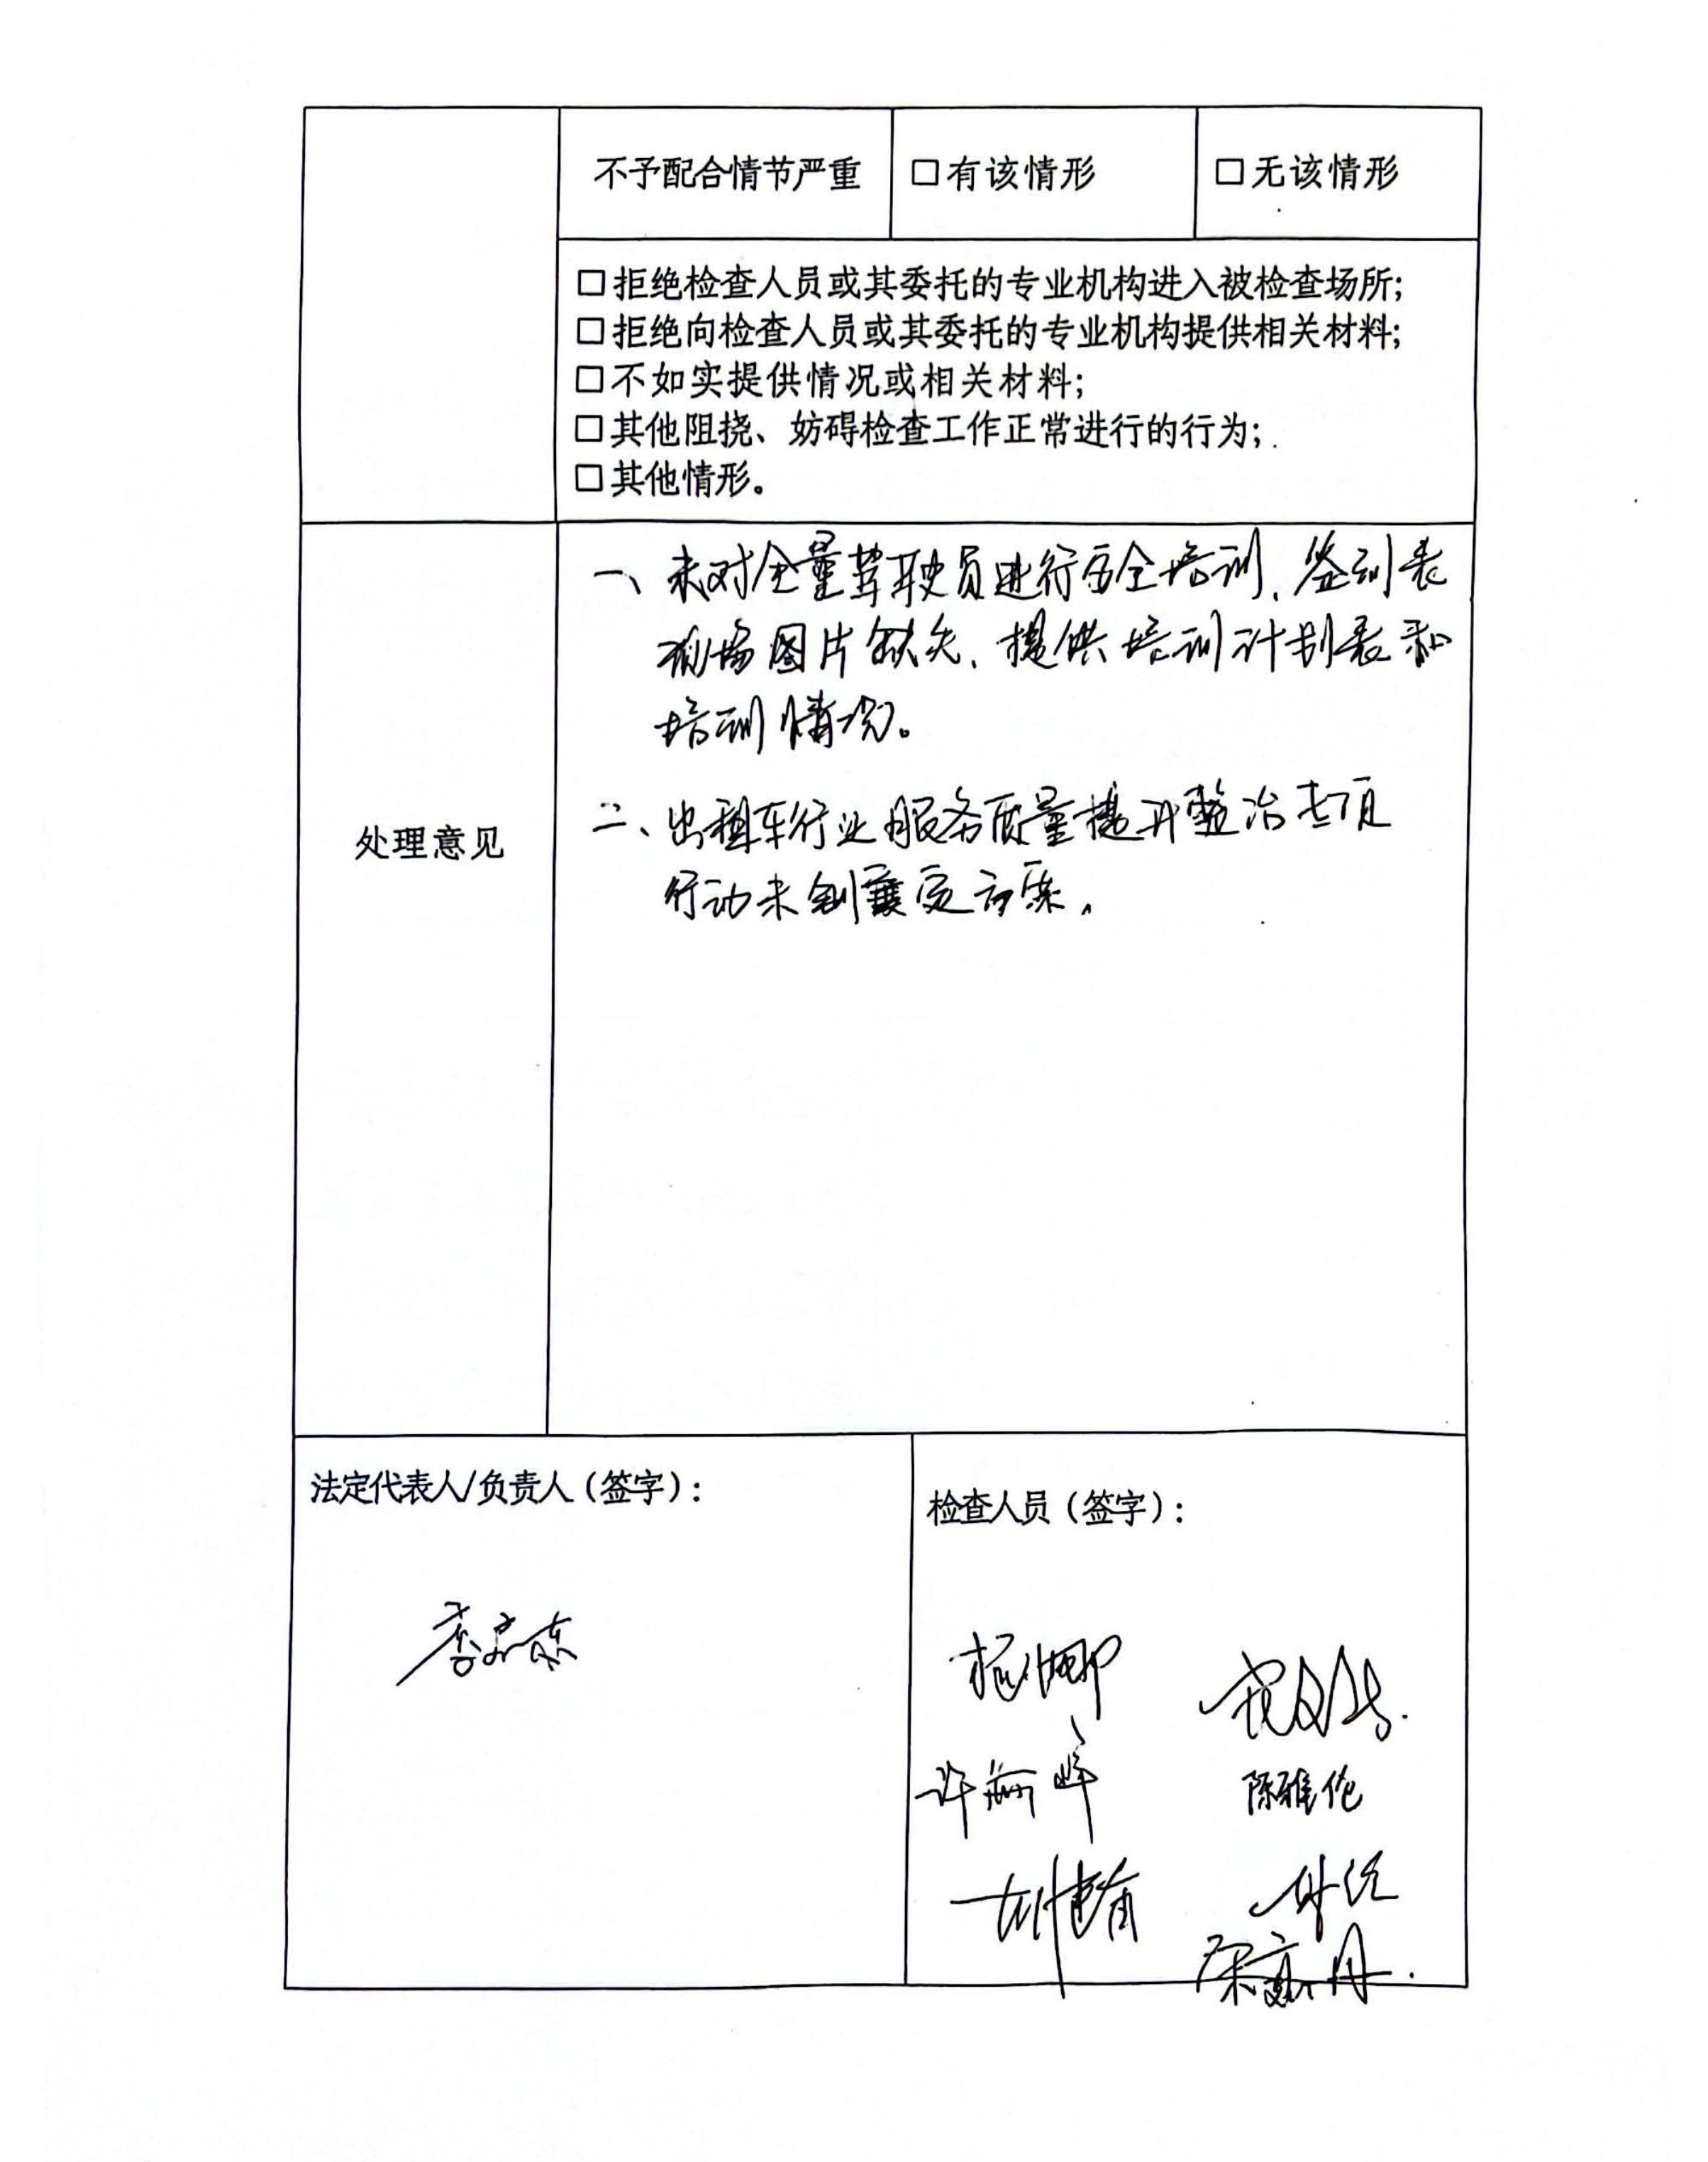 不予配合情节严重 □有该情形 □无该情形
□拒绝检查人员或其委托的专业机构进入被检查场所；
□拒绝向检查人员或其委托的专业机构提供相关材料；
□不如实提供情况或相关材料；
□其他阻挠、妨碍检查工作正常进行的行为；
□其他情形。
处理意见
一、未对全量驾驶员进行安全培训、签到表
现场图片缺失、提供培训计划表和
培训情况。
二、出租车行业服务质量提升整治专项
行动未制定方案。
法定代表人/负责人（签字）：
检查人员（签字）：
陈雅伦